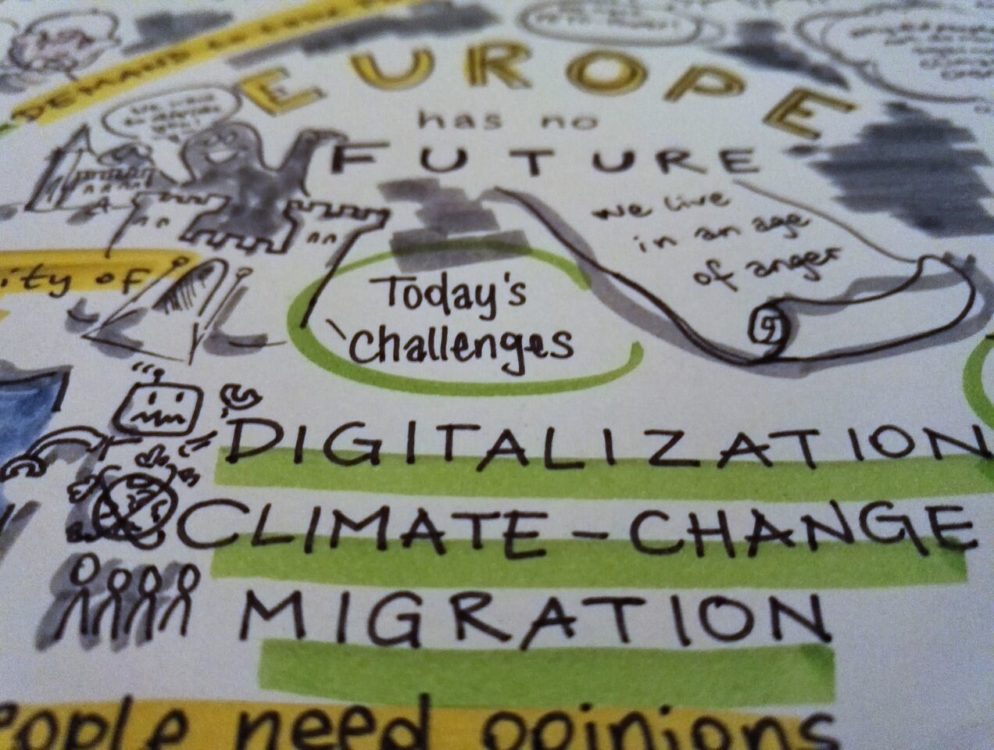 DEMAND
EUROPE
has no
FUTURE
We live
in an age
of anger
ity of
Today's
Challenges
DIGITALIZATION
CLIMATE-CHANGE
MIGRATION
eople need opinions